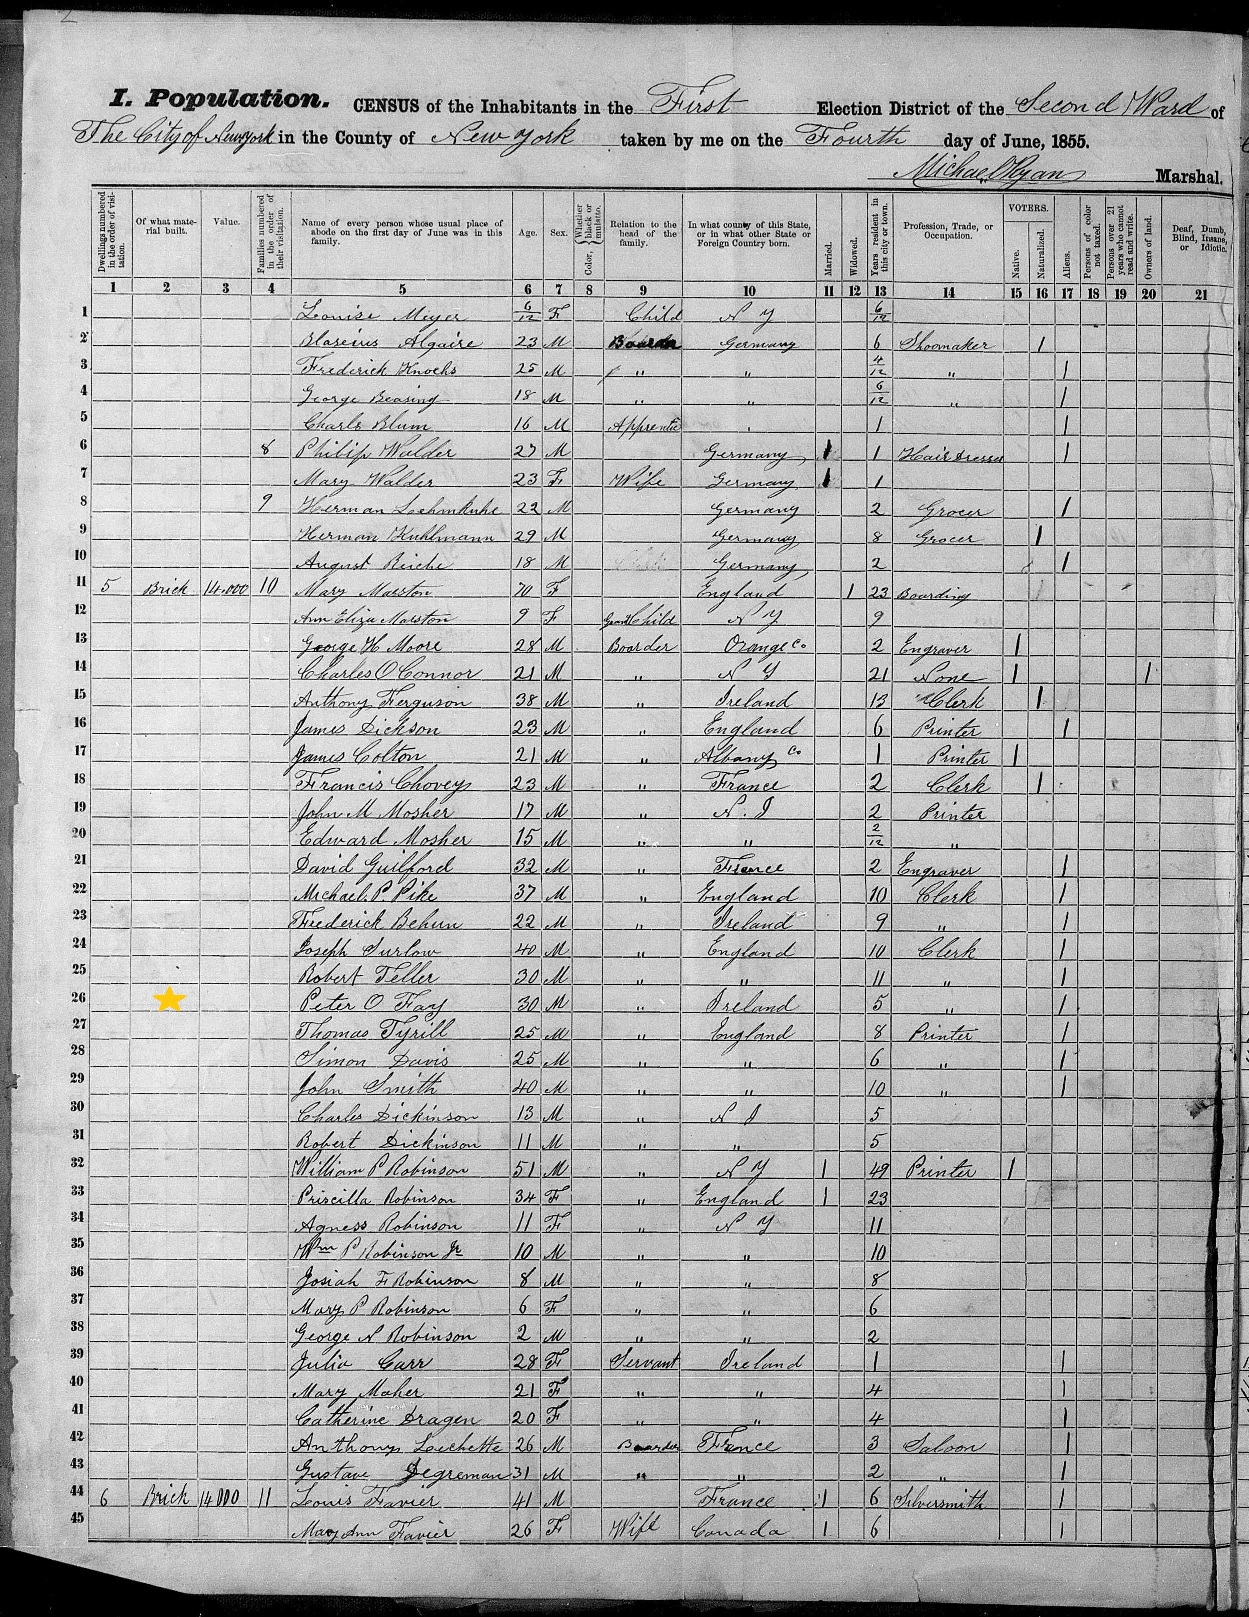 2
I. Population. CENSUS of the Inhabitants in the First Election District of the Second Ward of
The City of New york in the County of New york taken by me on the Fourth day of June, 1855.
Michael Ryan Marshal.
Dwellings numbered in the order of visitation. Of what material built. Value. Families numbered in the order of their visitation. Name of every person whose usual place of abode on the first day of June was in this family. Age. Sex. Color, Whether black or mulatto. Relation to the head of the family. In what county of this State, or in what other State or Foreign Country born. Married. Widowed. Years resident in this city or town. Profession, Trade, or Occupation. VOTERS. Native. Naturalized. Aliens. Persons of color not taxed. Persons over 21 years who cannot read and write. Owners of land. Deaf, Dumb, Blind, Insane, or Idiotic.
1 2 3 4 5 6 7 8 9 10 11 12 13 14 15 16 17 18 19 20 21
1 Louise Meyer 6/12 F Child N Y 6/12
2 Algaire 23 M Boarder Germany 6 Shoemaker 1
3 Frederick Knochs 25 M " " 4/12 " 1
4 George Beasing 18 M " " 6/12 " 1
5 Charls Blum 16 M Apprentic " 1 1
6 8 Philip Walder 27 M Germany 1 1 Hair Dresser 1
7 Mary Walder 23 F Wife Germany 1 1
8 9 Herman Lehmkuhl 22 M Germany 2 Grocer 1
9 Herman Kuhlmann 29 M Germany 8 Grocer 1
10 August Reiche 18 M Germany 2 1
11 5 Brick 14.000 10 Mary Marston 70 F England 1 23 Boarding
12 Ann Eliza Marston 9 F Grand Child N Y 9
13 George H Moore 28 M Boarder Orange Co 2 Engraver 1
14 Charles O Connor 21 M " N Y 21 None 1 1
15 Anthony Ferguson 38 M " Ireland 13 Clerk 1
16 James Dickson 23 M " England 6 Printer 1
17 James Colton 21 M " Albany Co 1 Printer 1
18 Francis Chovey 23 M " France 2 Clerk 1
19 John M Mosher 17 M " N. J 2 Printer
20 Edward Mosher 15 M " " 2/12 "
21 David Guilford 32 M " France 2 Engraver 1
22 Michael. P. Pike 37 M " England 10 Clerk 1
23 Frederick Behun 22 M " Ireland 9 " 1
24 Joseph Surlow 40 M " England 10 Clerk 1
25 Robert Teller 30 M " " 11 " 1
26 Peter O Fay 30 M " Ireland 5 " 1
27 Thomas Tyrill 25 M " England 8 Printer 1
28 Simon Davis 25 M " " 6 " 1
29 John Smith 40 M " " 10 " 1
30 Charles Dickinson 13 M " N J 5
31 Robert Dickinson 11 M " " 5
32 William P Robinson 51 M " N Y 1 49 Printer 1
33 Priscilla Robinson 34 F " England 1 23
34 Agness Robinson 11 F " N Y 11
35 Wm P Robinson Jr 10 M " " 10
36 Josiah F Robinson 8 M " " 8
37 Mary P Robinson 6 F " " 6
38 George N Robinson 2 M " " 2
39 Julia Carr 28 F Servant Ireland 1 1
40 Mary Maher 21 F " " 4 1
41 Catherine Dragen 20 F " " 4 1
42 Anthony Lechette 26 M Boarder France 3 Saloon 1
43 Gustave Degreman 31 M " " 2 " 1
44 6 Brick 14000 11 Louis Favier 41 M France 1 6 Silversmith 1
45 Mary Ann Favier 26 F Wife Canada 1 6 1